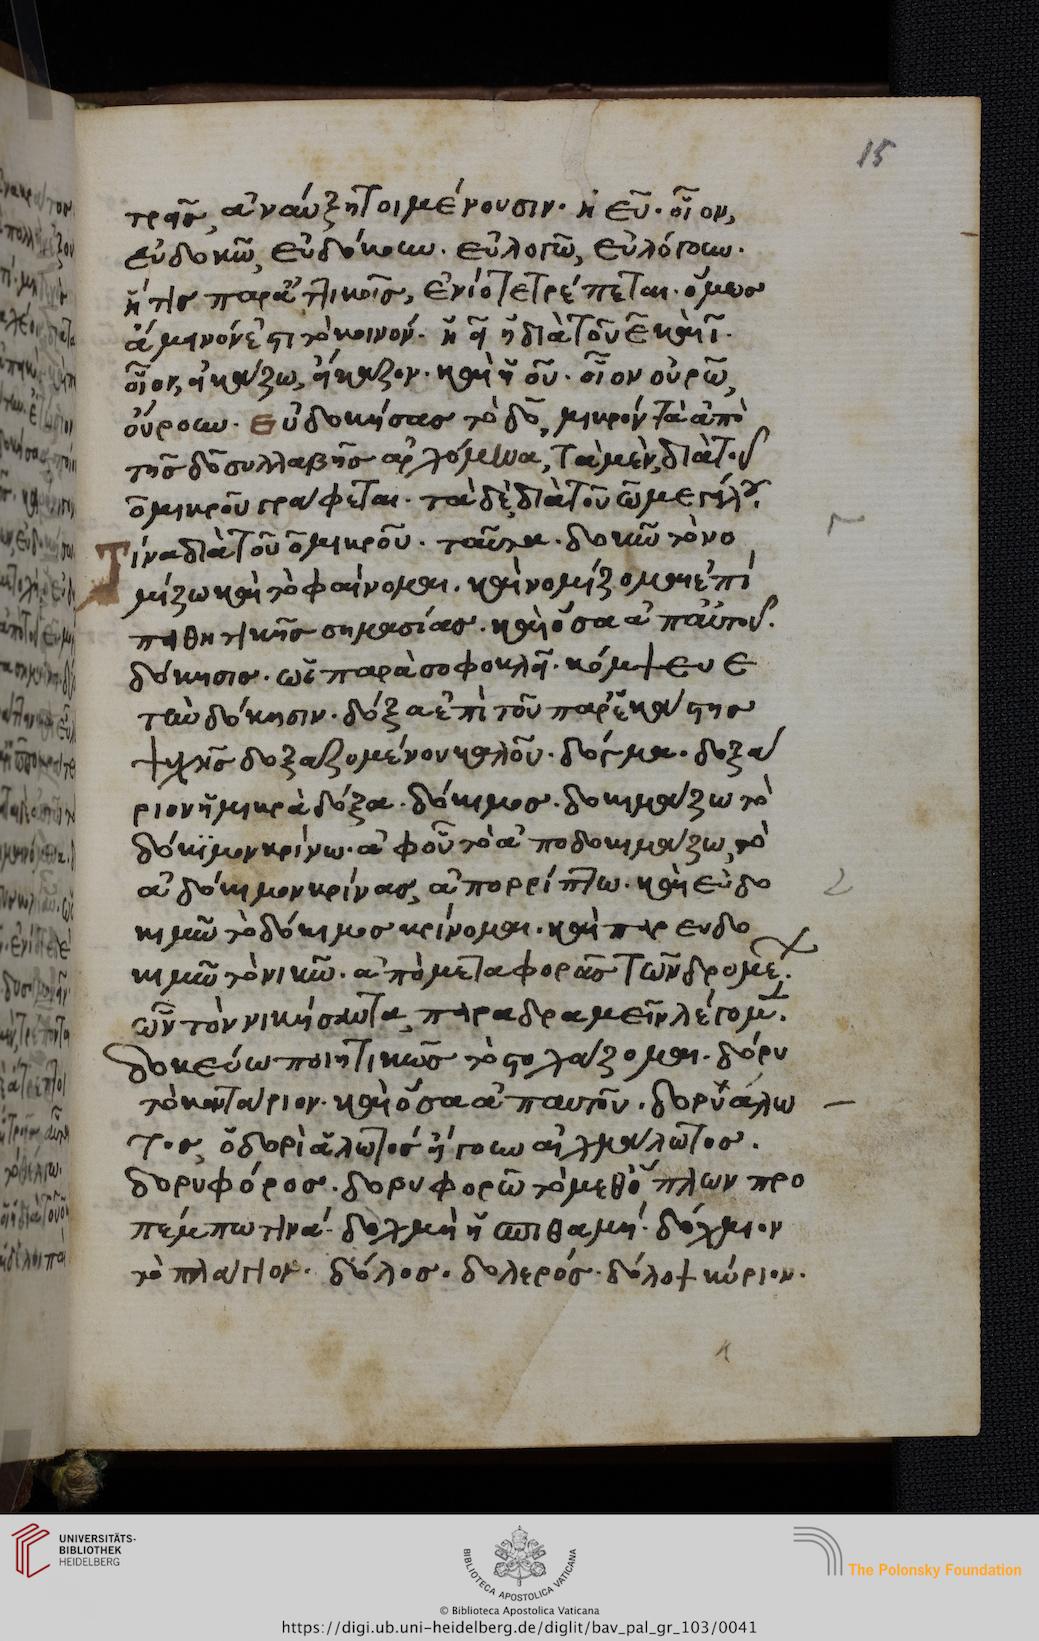 15
τρας, ἀναύξητοι μένουσιν. ἢ εὖ. οἷον,
εὐδοκῶ, εὐδόκουν. εὐλογῶ, εὐλόγουν.
ἤτις παρ' ἀττικοῖς, ἐνίοτε τρέπεται. ὅμως
ἄμεινόν ἐστι τὸ κοινόν. ἢ
οἷον, εἰκάζω, εἴκαζον. καὶ ἢ οὐ. οἷον οὐρῶ,
οὔρουν. Εὐδοκήσας τὸ δο, μικρόν τὰ ἀπὸ
τῆς δο συλλαβῆς ἀρχόμενα, τὰ μὲν, διὰ τοῦ
ο μικροῦ γράφεται. τὰ δὲ, διὰ τοῦ ω μεγάλου.
Τίνα διὰ τοῦ ο μικροῦ. ταῦτα. δοκῶ τὸ νο
μίζω καὶ τὸ φαίνομαι. καὶ νομίζομαι ἐπὶ
παθητικῆς σημασίας. καὶ ὅσα ἀπ' αὐτοῦ.
δόκησις. ὡς παρὰ σοφοκλῆ. κόμψευε
τὴν δόκησιν. δόξα ἐπὶ τοῦ παρ' ἑκάστης
ψυχῆς δοξαζομένου καλοῦ. δόγμα. δοξά
ριον ἡ μικρὰ δόξα. δόκιμος. δοκιμάζω τὸ
δόκιμον κρίνω. ἀφ' οὗ τὸ ἀποδοκιμάζω, τὸ
ἀδόκιμον κρίνας, ἀπορρίπτω. καὶ εὐδο
κιμῶ τὸ δόκιμος κρίνομαι. καὶ παρευδο
κιμῶ τὸ νικῶ. ἀπὸ μεταφορᾶς τῶν δρομέ.
ων τὸν νικήσαντα, παραδραμεῖν λέγομεν.
δοκεύω ποιητικῶς τὸ στοχάζομαι. δόρυ
τὸ κοντάριον. καὶ ὅσα ἀπ' αὐτοῦ. δορυάλω
τος, ὁ δορὶ ἁλωτός ἤγουν αἰχμάλωτος.
δορυφόρος. δορυφορῶ τὸ μεθ' ὅπλων προ
πέμπω τινά. δοχμὴ ἡ σπιθαμή. δόχμιον
τὸ πλάγιον. δόλος. δολερός. δόλοψ κύριον.
UNIVERSITÄTS-
BIBLIOTHEK
HEIDELBERG
BIBLIOTECA APOSTOLICA VATICANA
The Polonsky Foundation
© Biblioteca Apostolica Vaticana
https://digi.ub.uni-heidelberg.de/diglit/bav_pal_gr_103/0041